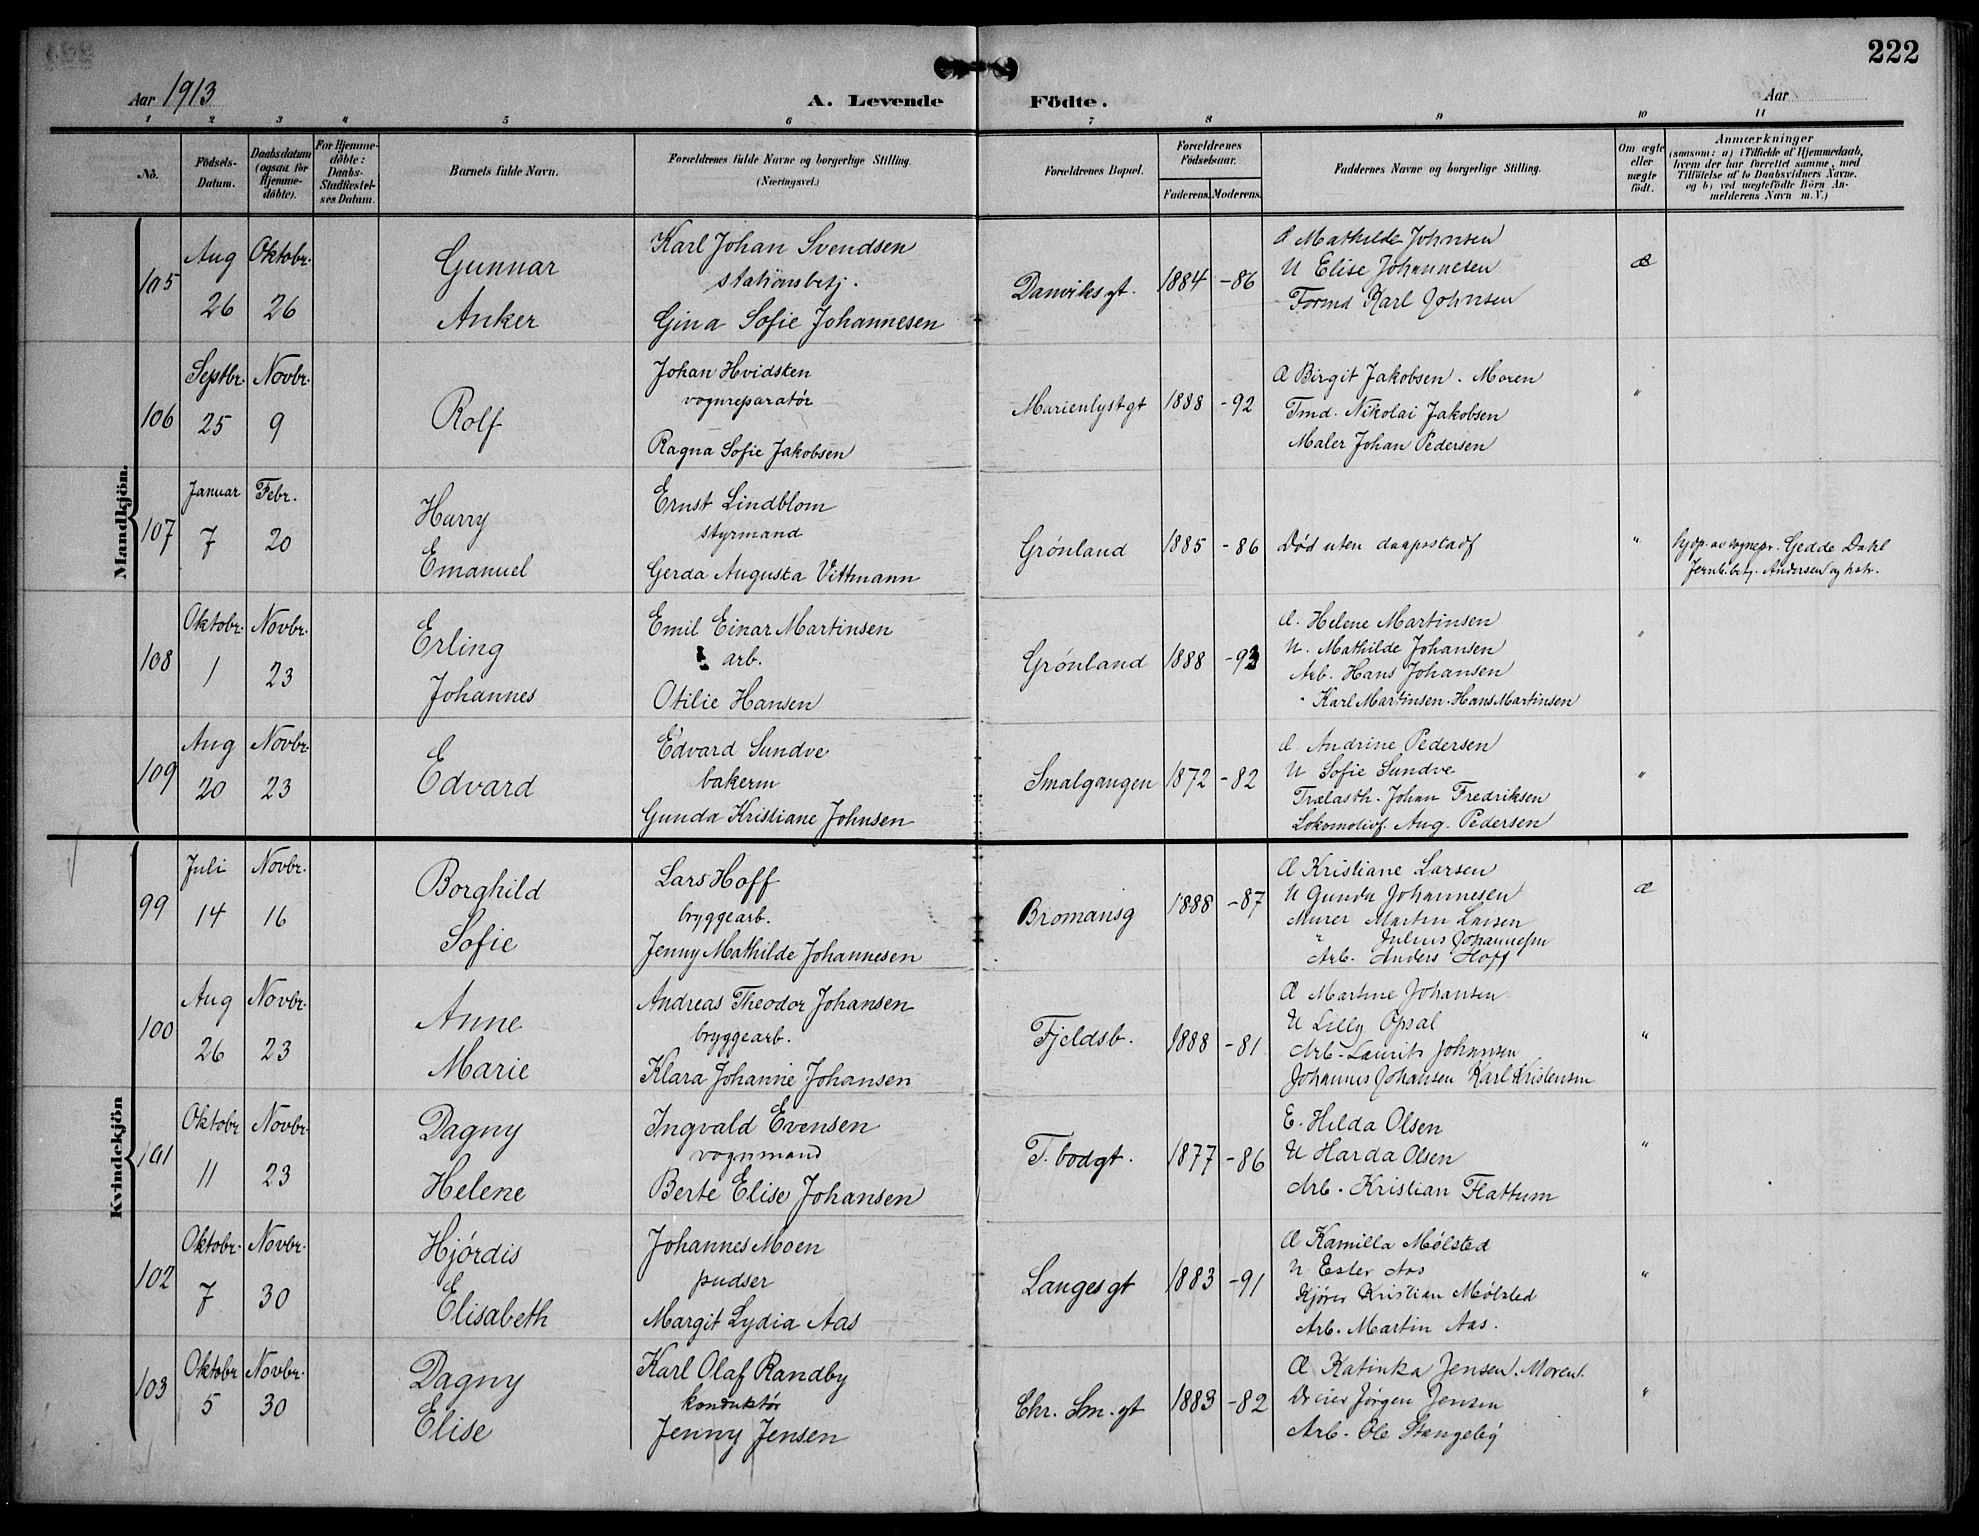 222
Aar 1913
A. Levende Födte.
Aar
1 2 3 4 5 6 7 8 9 10 11
No.
Födsels-Datum.
Daabsdatum (ogsaa for Hjemme-döbte).
For Hjemme-döbte: Daabs-Stadfæstel-ses Datum.
Barnets fulde Navn.
Forældrenes fulde Navne og borgerlige Stilling.
(Næringsvei.)
Forældrenes Bopæl.
Forældrenes Födselsaar.
Faderens. Moderens.
Faddernes Navne og borgerlige Stilling.
Om ægte eller uægte födt.
Anmærkninger
(saasom: a) i Tilfælde af Hjemmedaab,
hvem der har forrettet samme, med
Tilföielse af to Daabsvidners Navne.
og b) ved uægtefödte Börn An-
melderens Navn m. V.)
Mandkjön.
105
Aug 26
Oktobr. 26
Gunnar
Anker
Karl Johan Svendsen
stationsbetj.
Gina Sofie Johannesen
Danviks gt.
1884 -86
Æ Mathilde Johnsen
U Elise Johannesen
Formd Karl Johnsen
Æ
106
Septbr. 25
Novbr. 9
Rolf
Johan Hvidsten
vognreparatør
Ragna Sofie Jakobsen
Marienlyst gt
1888 -92
Æ Birgit Jakobsen. Moren
Tmd. Nikolai Jakobsen
Maler Johan Pedersen
"
107
Januar 7
Febr. 20
Harry
Emanuel
Ernst Lindblom
styrmand
Gerda Augusta Vittmann
Grønland
1885 -86
Død uten daapsstadf
"
hjdp. av sognepr. Gedde Dahl
Jernb.betj. Andersen og hstr.
108
Oktobr. 1
Novbr. 23
Erling
Johannes
Emil Einar Martinsen
arb.
Otilie Hansen
Grønland
1888
Æ. Helene Martinsen
U. Mathilde Johansen
Arb. Hans Johansen
" Karl Martinsen. Hans Martinsen
"
109
Aug 20
Novbr. 23
Edvard
Edvard Sundve
bakerm
Gunda Kristiane Johnsen
Smalgangen
1872 -82
Æ. Andrine Pedersen
U Sofie Sundve
Trælasth. Johan Fredriksen
Lokomotivf. Aug. Pedersen
"
Kvindekjön
99
Juli 14
Novbr. 16
Borghild
Sofie
Lars Hoff
bryggearb.
Jenny Mathilde Johannesen
Bromansg
1888 -87
Æ Kristiane Larsen
U Gunda Johannesen
Murer Martin Larsen
" Julius Johannesen
Arb. Anders Hoff
Æ
100
Aug 26
Novbr. 23
Anne
Marie
Andreas Theodor Johansen
bryggearb.
Klara Johanne Johansen
Fjeldsb.
1888 -81
Æ Martine Johansen
U Lilly Opsal
Arb. Laurits Johansen
Johannes Johansen Karl Kristensen
"
101
Oktobr 11
Novbr. 23
Dagny
Helene
Ingvald Evensen
vognmand
Berte Elise Johansen
T. bodgt.
1877 -86
E. Hilda Olsen
U Harda Olsen
Arb. Kristian Flattum
"
102
Oktobr. 7
Novbr. 30
Hjørdis
Elisabeth
Johannes Moen
pudser
Margit Lydia Aas
Langes gt
1883 -91
Æ Kamilla Mølsted
U Ester Aas
Kjører Kristian Mølsted
Arb. Martin Aas.
"
103
Oktobr 5
Novbr. 30
Dagny
Elise
Karl Olaf Randby
konduktør
Jenny Jensen
Chr. Sm. gt
1883 -82
Æ Katinka Jensen. Moren.
Dreier Jørgen Jensen
Arb. Ole Stangeby
"